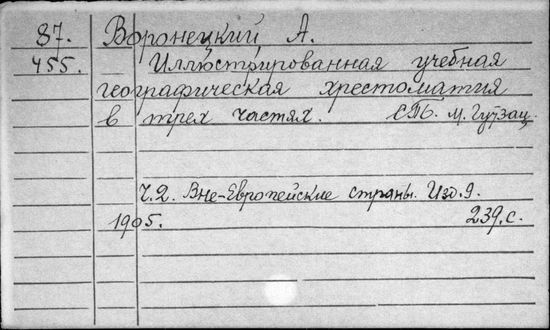 87. Воронецкий А.
455. Иллюстрированная учебная
географическая хрестоматия
в трех частях. СПб. М. Гутзац.
Ч.2. Вне-Европейские страны. Изд. 9.
1905. 239.с.